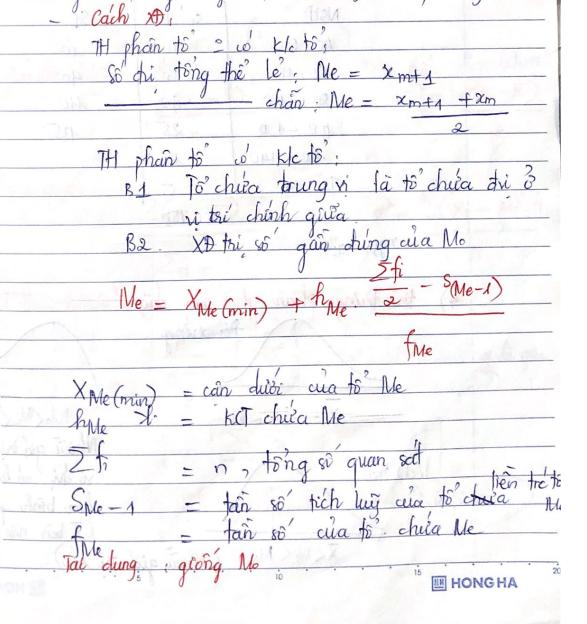 - Cách XĐ:
TH phân tổ 0 có k/c tổ:
Số đvị tổng thể lẻ: Me = x_{m+1}
chẵn: Me = (x_{m+1} + x_m)/2
TH phân tổ có k/c tổ:
B1 Tổ chứa trung vị là tổ chứa đvị ở
vị trí chính giữa.
B2. XĐ trị số gần đúng của Mo
Me = X_{Me(min)} + h_{Me} . (Σfi/2 - S_{(Me-1)})/f_{Me}
X_{Me(min)} = cận dưới của tổ Me
h_{Me} = KCT chứa Me
Σfi = n, tổng số quan sát
S_{Me-1} = tần số tích luỹ của tổ liền trc tổ Me
f_{Me} = tần số của tổ chứa Me
Tác dụng: giống Mo
5 10 15 20
HONG HA